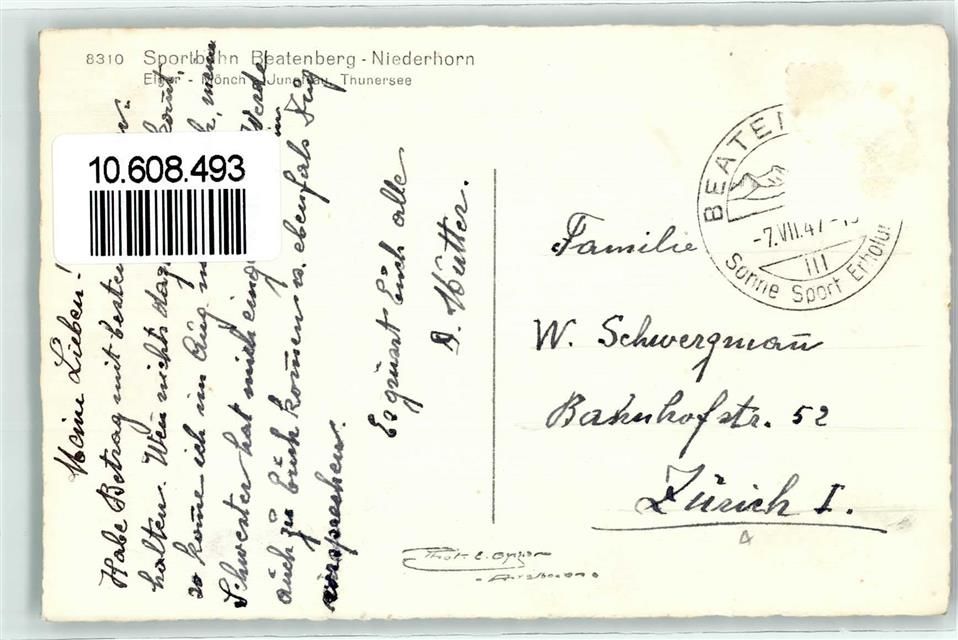 8310 Sportbahn Beatenberg - Niederhorn
Eiger - Mönch - Jungfrau, Thunersee
10.608.493
Meine Lieben!
Habe Betrag mit besten
halten. Wen nichts kom̄t,
so kom̄e ich im Aug
Schwester hat mich Werde
auch zu Euch kom̄en ebenfals
vorsprechen.
Es grüsst Euch alle
Mutter.
BEATEN
-7.VII.47-
III
Sonne Sport Erholu
Familie
W. Schwergman̄
Bahnhofstr. 52
Zürich I.
Phot.